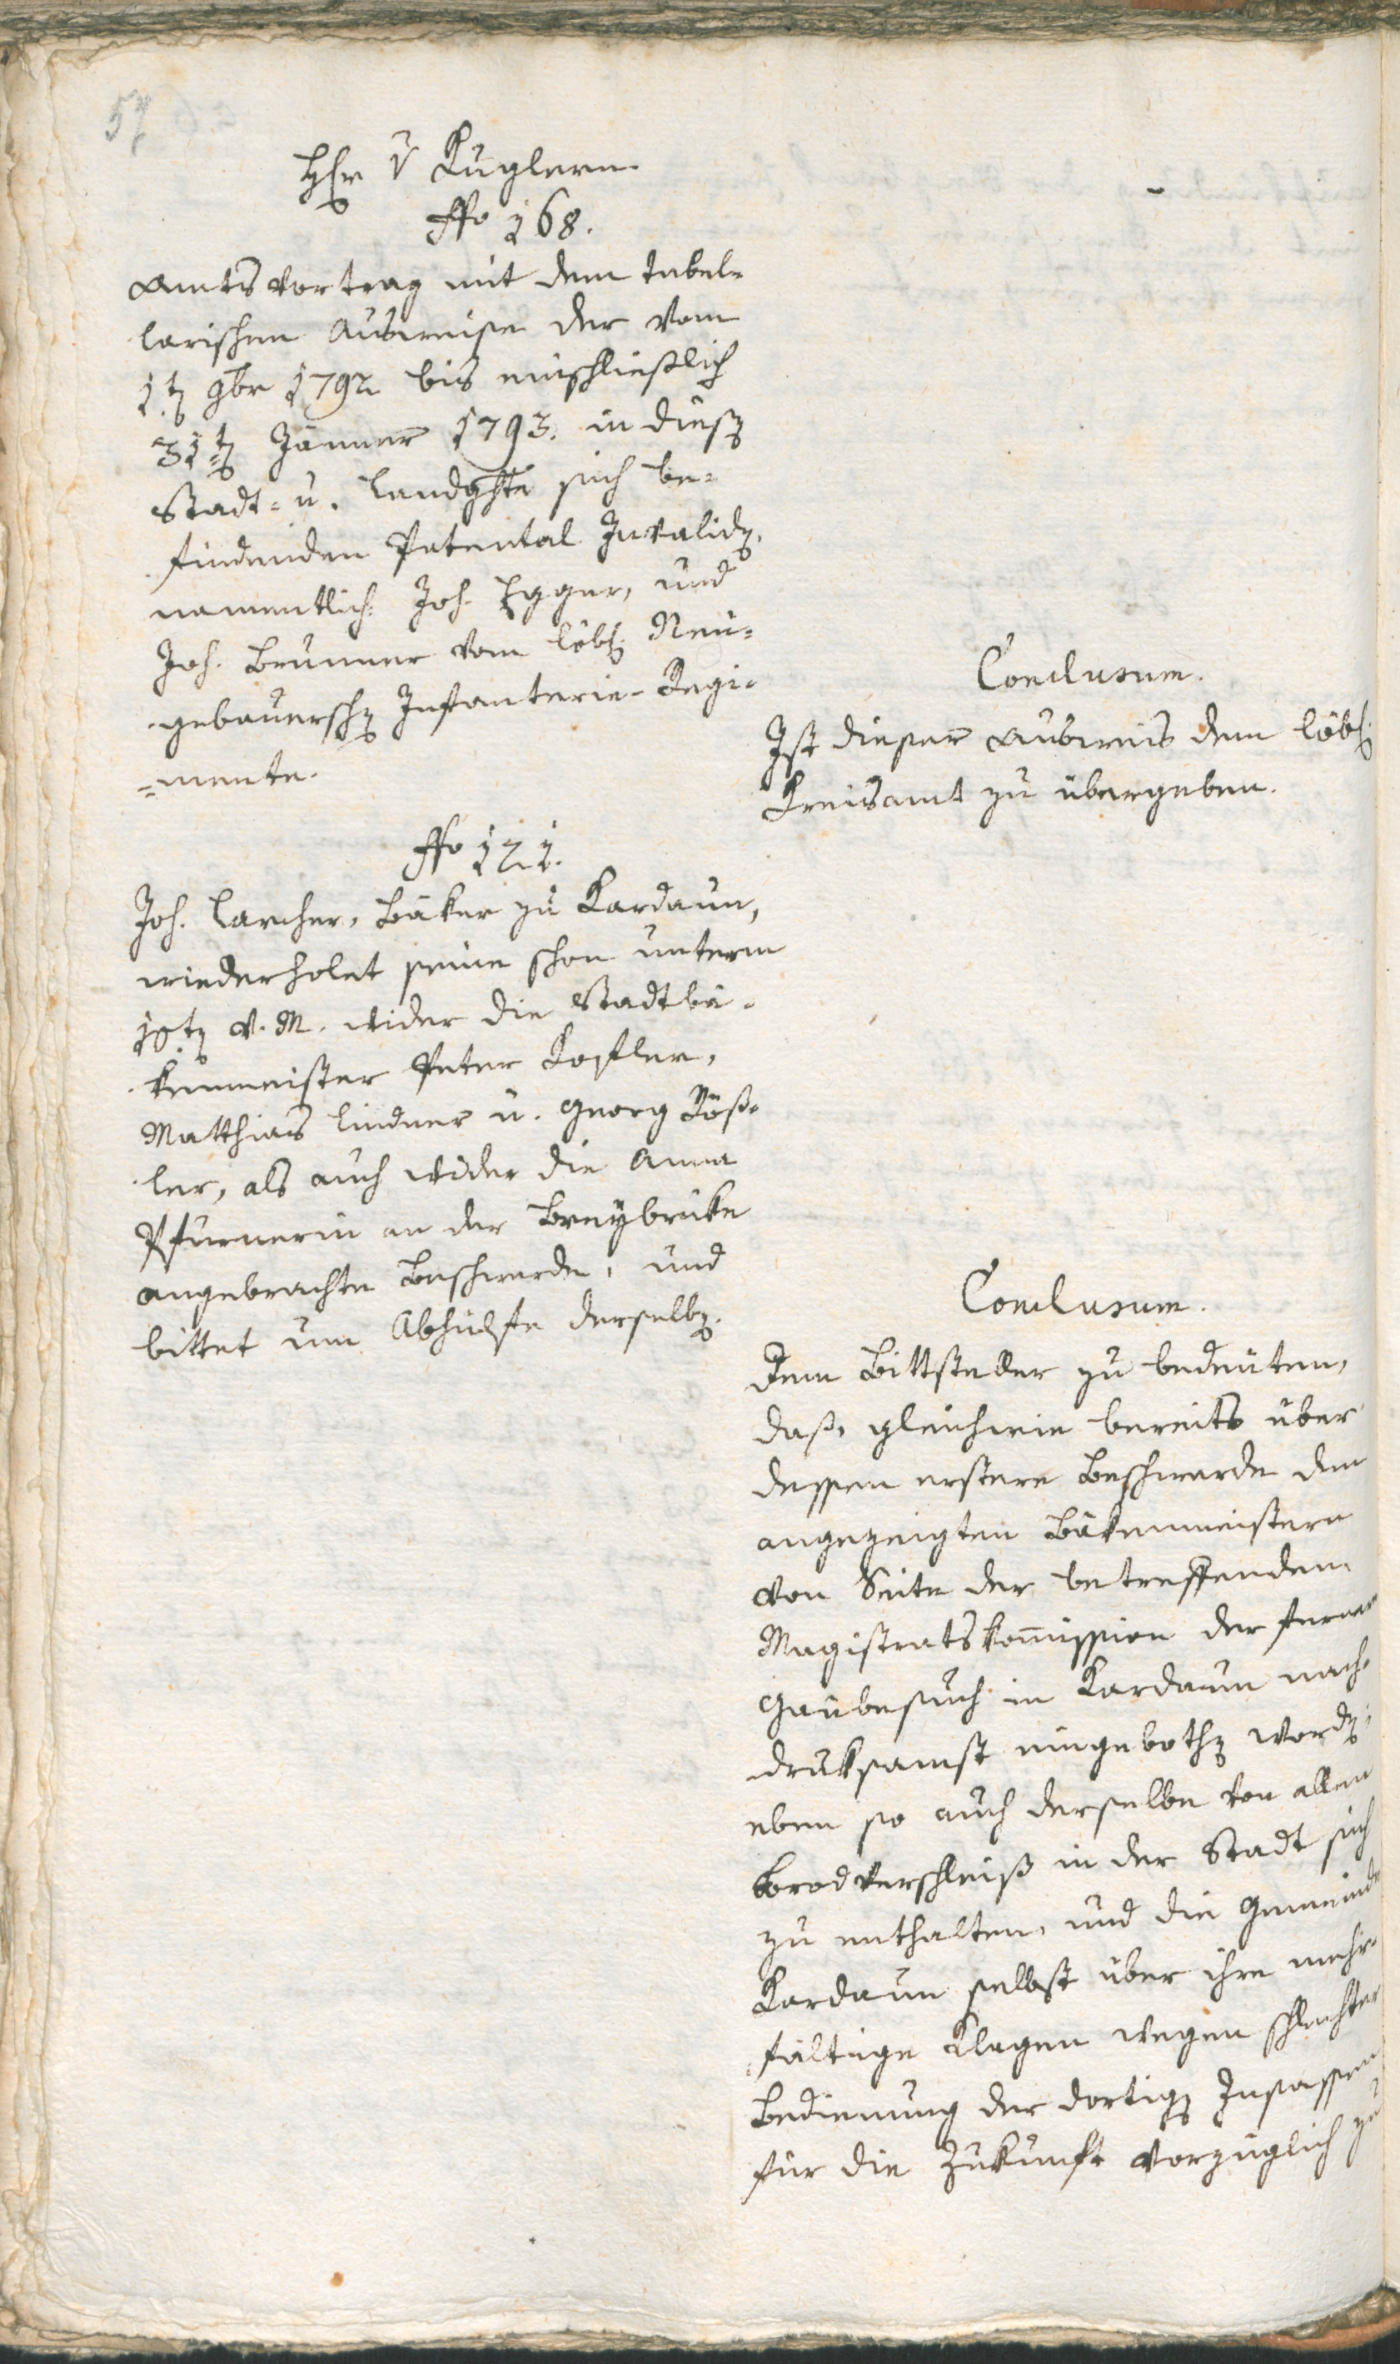 57
Hℓr v Kuglern
Nro 168.
Amtsvortrag mit dem tabel-
larischen Ausweise der vom
1.t 9br 1792 bis einschließlich
31.t Jänner 1793. in dies
Stadt- u. Landghte sich be-
findenden Patental Invalid
namentlich: Joh. Egger, und
Joh. Brunner vom löbl. Neu-
gebauersch Infanterie-Regi-
=mente.
Nro 171.
Joh. Larcher, Bäker zu Kardaun,
wiederholet seine schon unterm
18.t v. M. wider die Stadtbä-
kenmeister Peter Kopfler,
Matthias Lindner u. Georg Röß-
ler, als auch wider die Anna
Pfurnerin an der Breybrüke
angebrachte Beschwerde, und
bittet um Abhülfe derselb.
Conclusum.
Ist dieser Ausweis dem löbl.
Kreisamt zu übergeben.
Conclusum.
Dem Bittsteller zu bedeuten,
daß, gleichwie bereits über
dessen erstere Beschwerde den
angezeigten Bäkenmeistern
von Seite der betreffenden
Magistratskom̅ission der fernere
Gäubesuch in Kardaun nach-
druksamst eingeboth word,
eben so auch derselbe von allem
Brodverschleiß in der Stadt sich
zu enthalten, und die Gemeinde
Kardaun selbst über ihre mehr-
fältige Klagen wegen schlechter
Bedienung der dortig Insassen
für die Zukunft vorzüglich zu